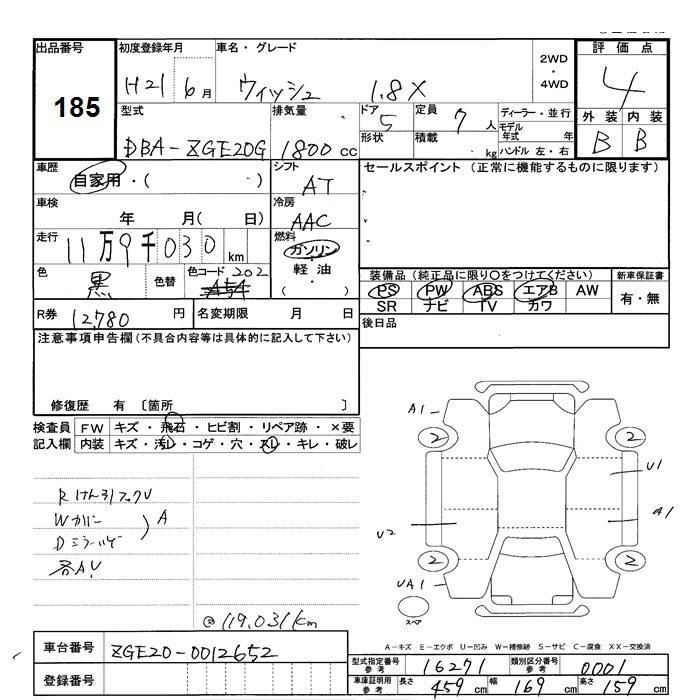 出品番号
185
初度登録年月
H21 6月
車名・グレード
ウィッシュ 1.8X
2WD
・
4WD
評価点
4
型式
DBA-ZGE20G
排気量
1800 cc
ドア
5
形状
定員
7 人
積載
kg
ディーラー・並行
モデル年式 年
ハンドル 左・右
外装 内装
B B
車歴
自家用・( )
シフト
AT
セールスポイント (正常に機能するものに限ります)
車検
年 月( 日)
冷房
AAC
走行
11万9千030 km
燃料
ガソリン
軽油
( ・ )
色
黒
色替
色コード 202
装備品 (純正品に限り○をつけてください)
新車保証書
PS PW ABS エアB AW
SR ナビ TV カワ
有・無
R券 12,780 円
名変期限 月 日
後日品
注意事項申告欄 (不具合内容等は具体的に記入して下さい)
修復歴 有 〔箇所 〕
検査員
記入欄
FW キズ・飛石・ヒビ割・リペア跡・×要
内装 キズ・汚レ・コゲ・穴・スレ・キレ・破レ
A
119,031km
A1
2 2
U1
U2
A1
2 2
UA1
スペア
A-キズ E-エクボ U-凹み W-補修跡 S-サビ C-腐食 XX-交換済
車台番号 ZGE20-0012652
登録番号
型式指定番号 参考 16271
類別区分番号 参考 0001
車庫証明用 参考 長さ 459 cm 幅 169 cm 高さ 159 cm